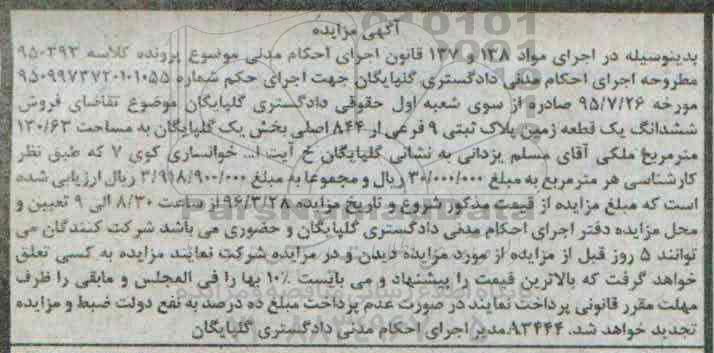 آگهی مزایده
بدینوسیله در اجرای مواد ۱۳۸ و ۱۳۷ قانون اجرای احکام مدنی موضوع پرونده کلاسه ۹۵۰۳۹۳
مطروحه اجرای احکام مدنی دادگستری گلپایگان جهت اجرای حکم شماره ۹۵۰۹۹۷۳۷۲۰۱۰۱۰۵۵
مورخه ۹۵/۷/۲۶ صادره از سوی شعبه اول حقوقی دادگستری گلپایگان موضوع تقاضای فروش
ششدانگ یک قطعه زمین پلاک ثبتی ۹ فرعی از ۸۴۴ اصلی بخش یک گلپایگان به مساحت ۱۳۰/۶۳
مترمربع ملکی آقای مسلم یزدانی به نشانی گلپایگان خ آیت ا... خوانساری کوی ۷ که طبق نظر
کارشناسی هر مترمربع به مبلغ ۳۰/۰۰۰/۰۰۰ ریال و مجموعا به مبلغ ۳/۹۱۸/۹۰۰/۰۰۰ ریال ارزیابی شده
است که مبلغ مزایده از قیمت مذکور شروع و تاریخ مزایده ۹۶/۳/۲۸ از ساعت ۸/۳۰ الی ۹ تعیین و
محل مزایده دفتر اجرای احکام مدنی دادگستری گلپایگان و حضوری می باشد شرکت کنندگان می
توانند ۵ روز قبل از مزایده از مورد مزایده دیدن و در مزایده شرکت نمایند مزایده به کسی تعلق
خواهد گرفت که بالاترین قیمت را پیشنهاد و می بایست ۱۰٪ بها را فی المجلس و مابقی را ظرف
مهلت مقرر قانونی پرداخت نمایند در صورت عدم پرداخت مبلغ ده درصد به نفع دولت ضبط و مزایده
تجدید خواهد شد. ۹۳۴۴۴.مدیر اجرای احکام مدنی دادگستری گلپایگان
ParsNamadData